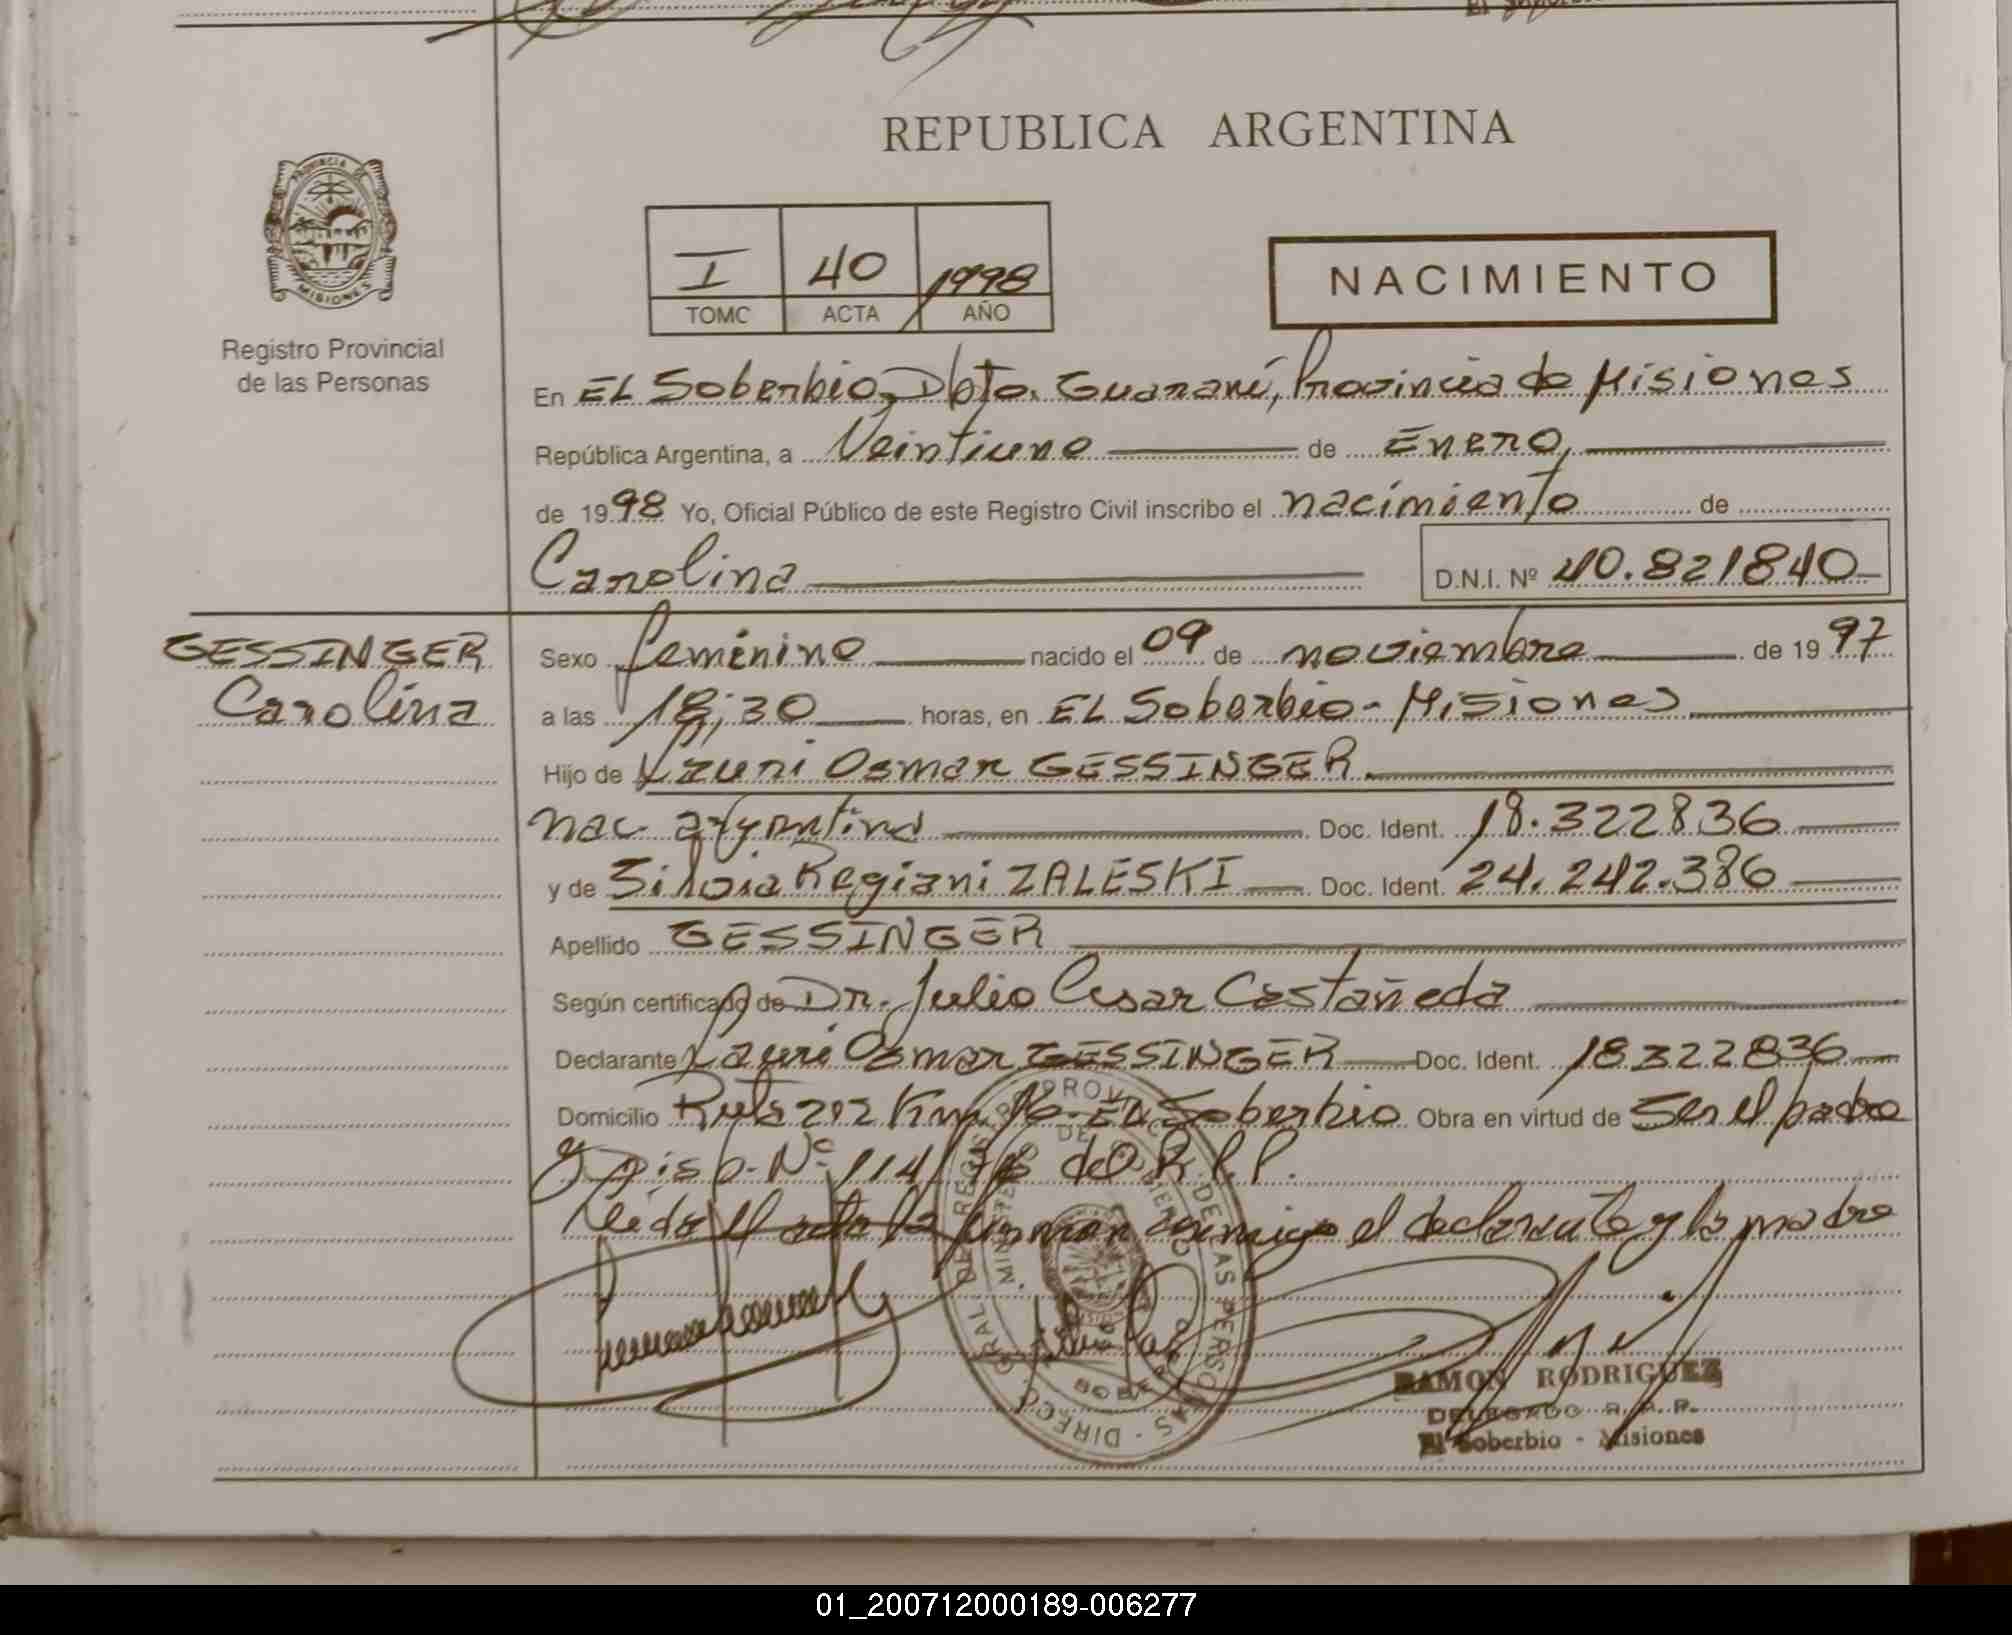 REPUBLICA ARGENTINA
PROVINCIA DE
MISIONES
Registro Provincial
de las Personas
I 40 1998
TOMO ACTA AÑO
NACIMIENTO
En EL Soberbio, Dpto. Guaraní, Provincia de Misiones
República Argentina, a Veintiuno de Enero,
de 1998 Yo, Oficial Público de este Registro Civil inscribo el nacimiento de
Carolina D.N.I. Nº 40.821840
GESSINGER
Carolina
Sexo femenino nacido el 09 de noviembre de 1997
a las 18,30 horas, en EL Soberbio - Misiones
Hijo de Lauri Osmar GESSINGER
nac. argentina Doc. Ident. 18.322836
y de Silvia Regiani ZALESKI Doc. Ident. 24.242.386
Apellido GESSINGER
Según certificado de Dr. Julio Cesar Castañeda
Declarante Lauri Osmar GESSINGER Doc. Ident. 18322836
Domicilio Ruta 212 Km EL Soberbio Obra en virtud de Ser el padre
y Disp. Nº 114 del R.P.P.
Leída el acta la firman conmigo el declarante y la madre
DIRECC. GRAL. DE REGISTRO PROVINCIAL DE LAS PERSONAS
RAMON RODRIGUEZ
DELEGADO R. P. P.
El Soberbio - Misiones
01_200712000189-006277